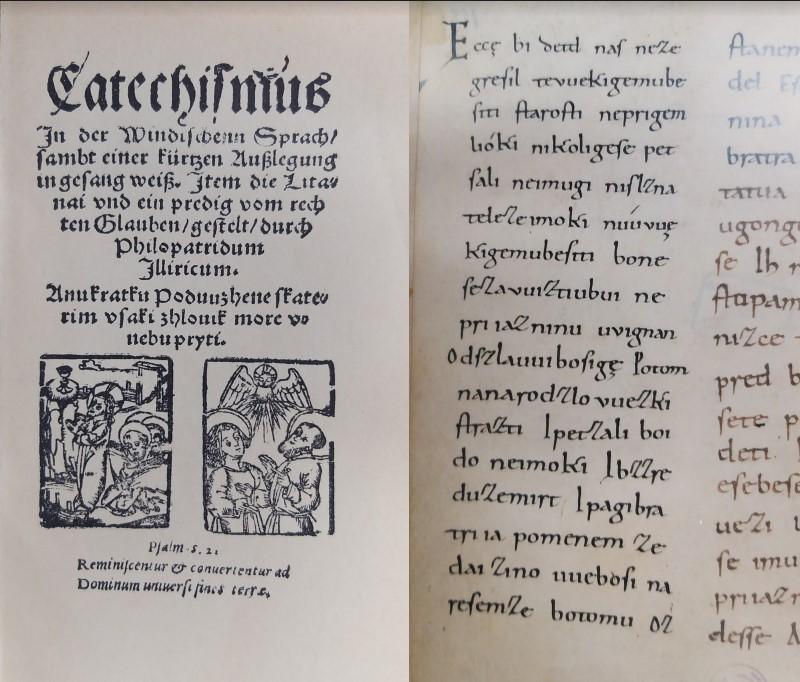 Catechismus
In der Windischenn Sprach/
sambt einer kürtzen Außlegung
in gesang weiß. Item die Lita-
nai vnd ein predig vom rech
ten Glauben/gestelt/durch
Philopatridum
Illiricum.
Anu kratku Poduuzhene skate-
rim vsaki zhlouik more vo
nebu pryti.
Psalm.
Reminiscentur & conuertentur ad
Dominum uniuersi fines terræ.
Eccę bi detd naſ neze
greſil teuuekigemube
ſiti ſtaroſti neprigem
lióki nikoligeſe pet
ſali neimugi niſlzna
teleſe imoki nuúvuę
kigemubeſiti bone
ſezavuiztiubui ne
priiaznninu uvignan
Odſzlauuibosige Potom
nanarodzlo vuezki
ſtrazti Ipetzali boi
do neimoki Ibzzre
duzemirt Ipagibra
triia pomenem ze
dai zino uuebosi na
resemze botomu oz
ſtanem
del
nina
bratra
tatua
se
ſtipam
nizce
pred
sete
deti
eſebeſe
uezi
se imu
priiazn
deſſe